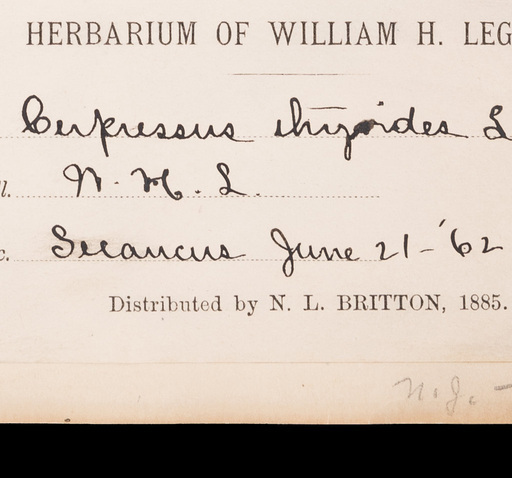 HERBARIUM OF WILLIAM H. LEG
Cupressus thyoides L
l. W. H. L.
c. Secaucus June 21-'62
Distributed by N. L. BRITTON, 1885.
N.J. -